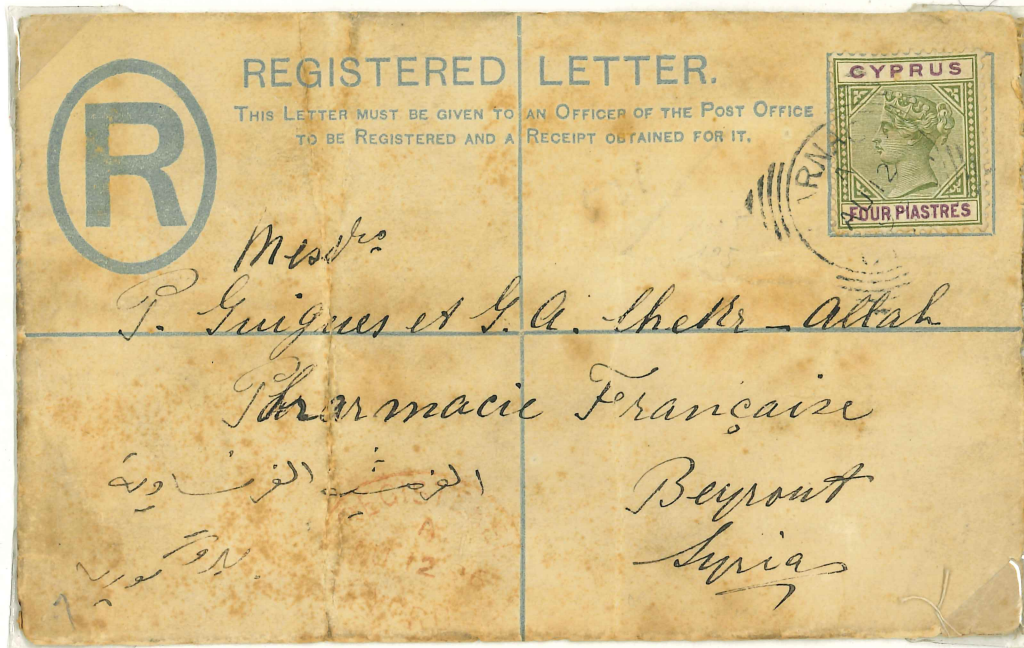 R
REGISTERED LETTER.
THIS LETTER MUST BE GIVEN TO AN OFFICER OF THE POST OFFICE
TO BE REGISTERED AND A RECEIPT OBTAINED FOR IT.
CYPRUS
FOUR PIASTRES
Messrs
P. Guigues et G. A. Chekr-Allah
Pharmacie Française
الفرنساوية
Beyrout
Syria
بيروت سوريا